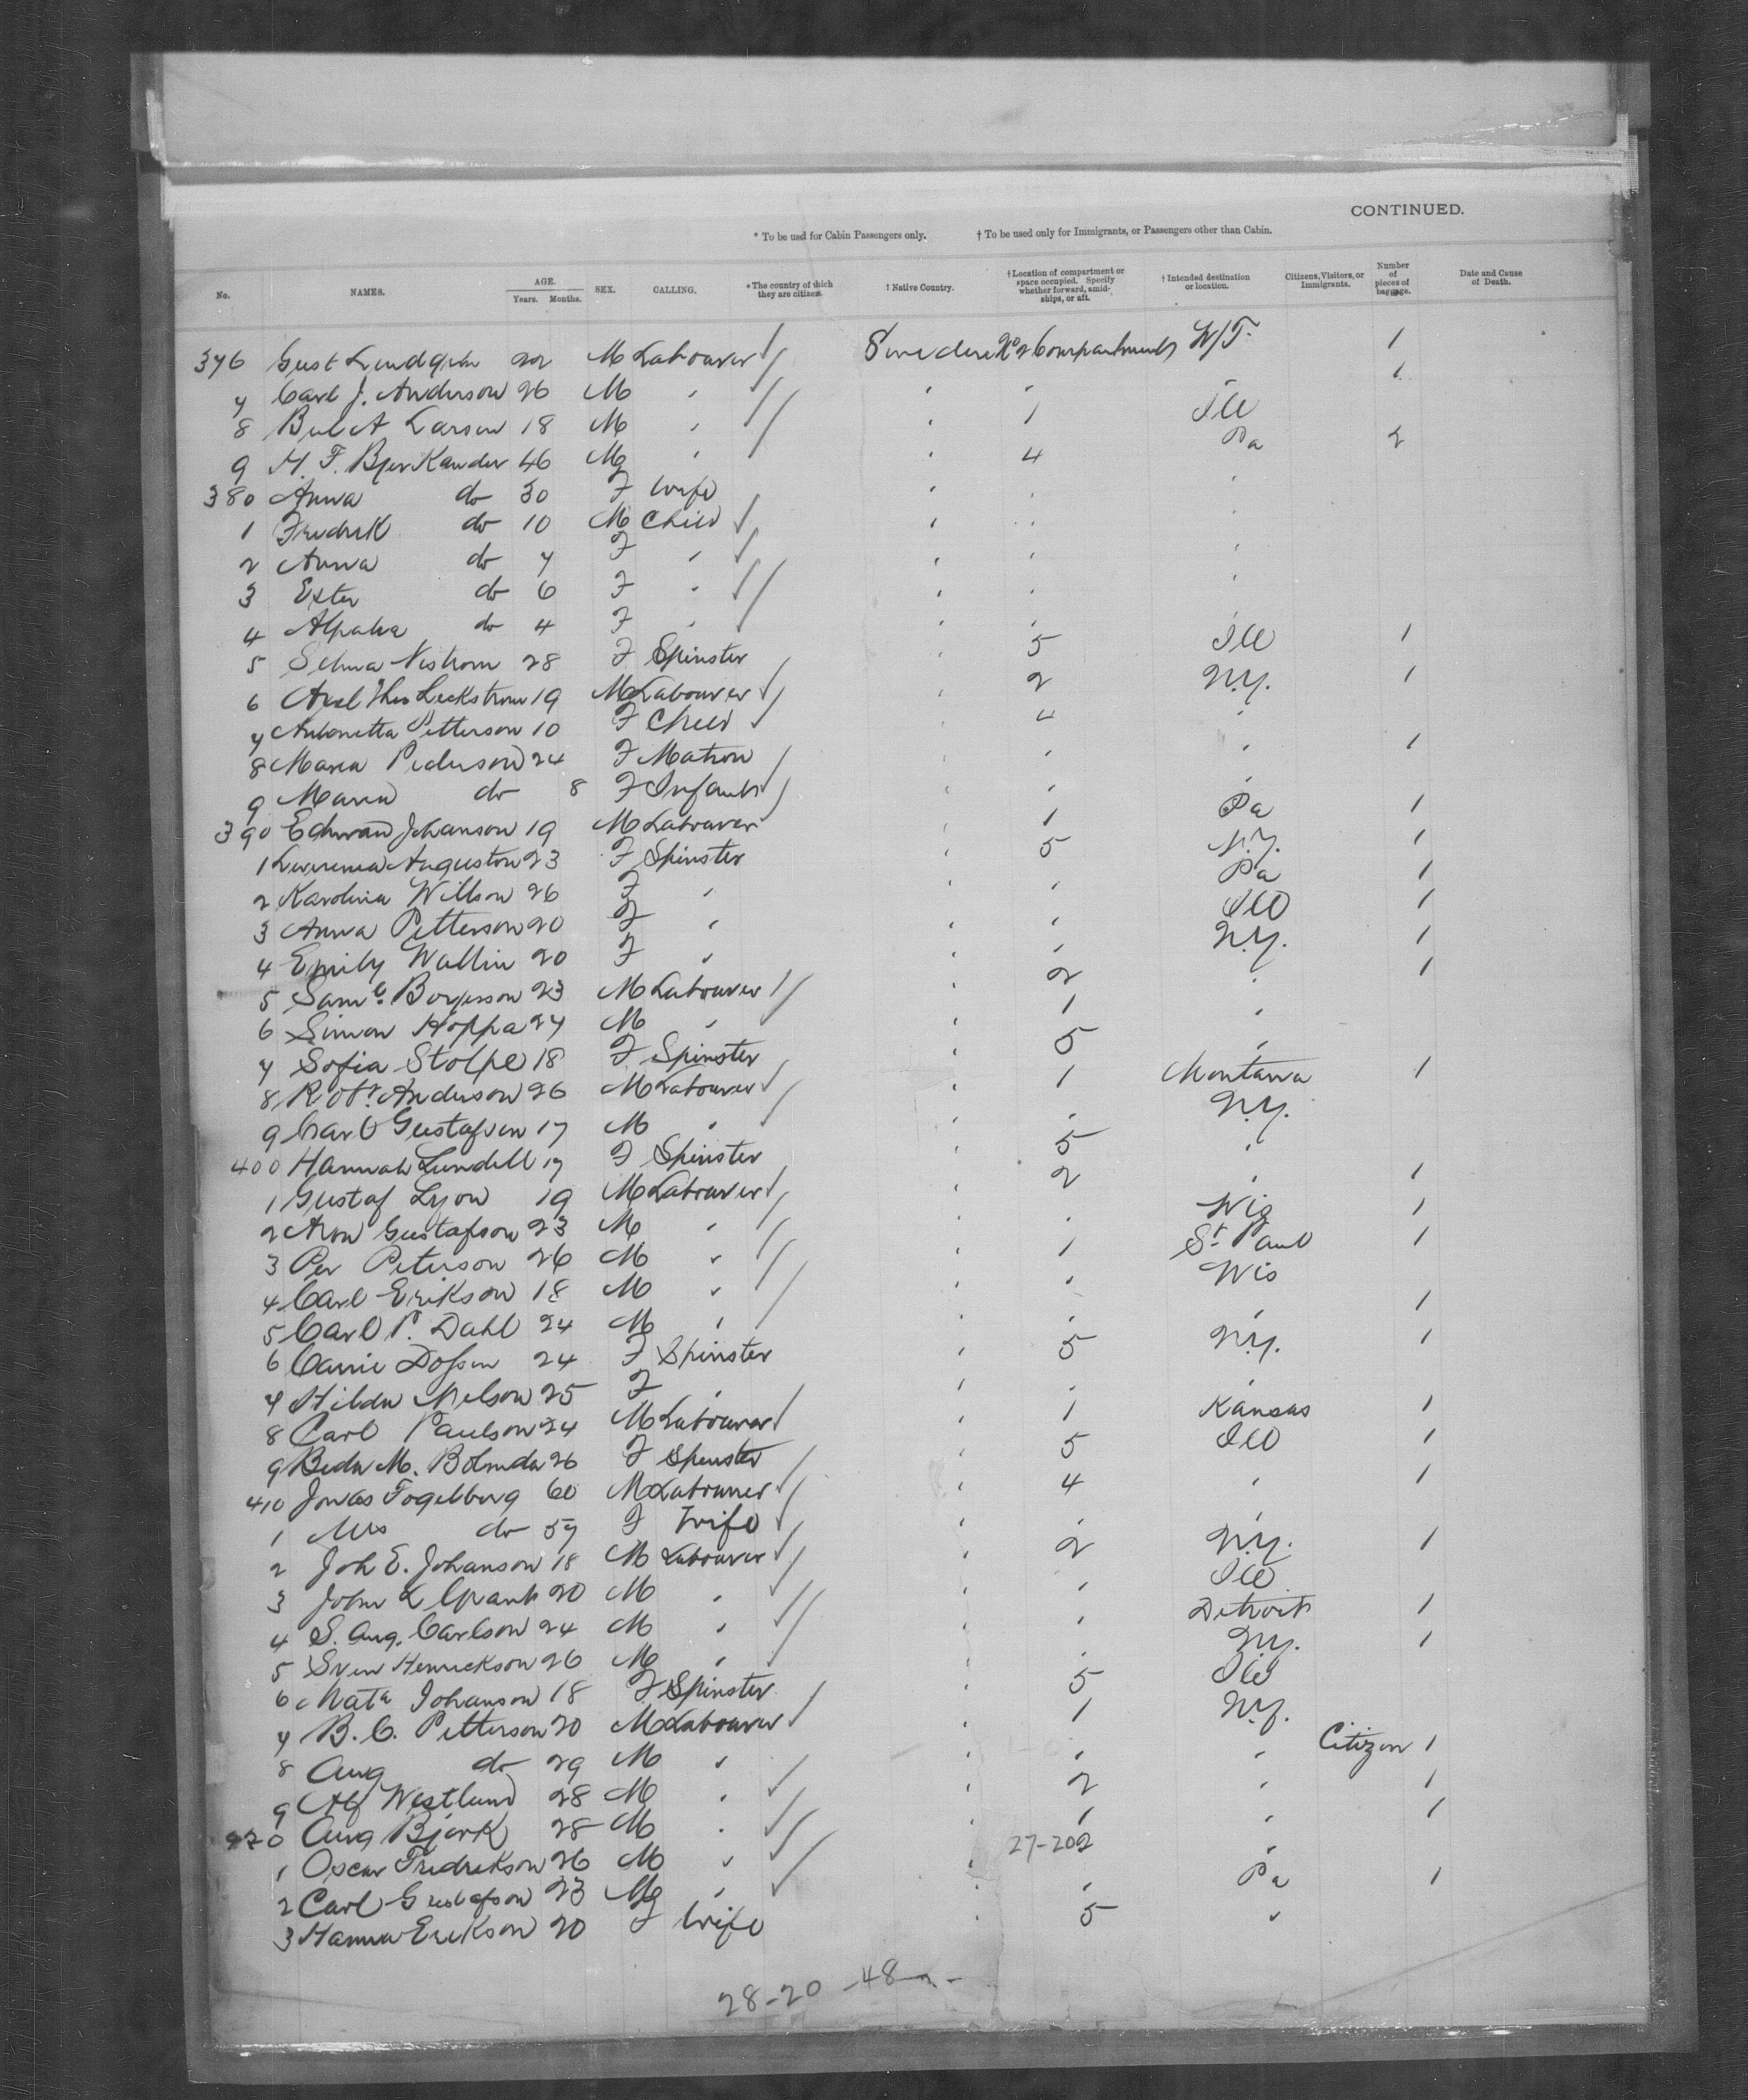 CONTINUED.
* To be used for Cabin Passengers only. † To be used only for Immigrants, or Passengers other than Cabin.
No. NAMES. AGE. Years. Months. SEX. CALLING. * The country of which they are citizens. † Native Country. † Location of compartment or space occupied. Specify whether forward, amidships, or aft. † Intended destination or location. Citizens, Visitors, or Immigrants. Number of pieces of baggage. Date and Cause of Death.
376 Gust M Labourer Sweden No 2 Compartment 1
7 Carl J. Anderson 26 M " " " " 1
8 Larson 18 M " " 1 Ill
9 46 M " " 4 Pa 2
380 Anna do 30 F Wife " " "
1 Fredrik do 10 M Child " " "
2 Anna do 7 F " " " "
3 Ester do 6 F " " " "
4 do 4 F " " " "
5 Selma Nistrom 28 F Spinster " 5 Ill 1
6 Axel Leckstrom 19 M Labourer " 2 N.Y. 1
7 Antonetta Petterson 10 F Child " 4 "
8 Maria Pederson 24 F Matron " " " 1
9 Maria do 8 F Infant " " "
390 Edward Johanson 19 M Labourer " 1 Pa 1
1 Auguston 23 F Spinster " 5 N.Y. 1
2 Karolina Willson 26 F " " " Pa 1
3 Anna Petterson 20 F " " " Ill 1
4 Emily Wallin 20 F " " " N.Y. 1
5 Saml. Borjesson 23 M Labourer " 2 " 1
6 Simon Hoppa 27 M " " 1 "
7 Sofia Stolpe 18 F Spinster " 5 "
8 Robt. Anderson 26 M Labourer " 1 Montana 1
9 Carl Gustafson 17 M " " " N.Y.
400 Hannah Lundell 17 F Spinster " 5 "
1 Gustaf Lyon 19 M Labourer " 2 " 1
2 Aron Gustafson 23 M " " " Wis 1
3 Per Peterson 26 M " " 1 St. Paul 1
4 Carl Erikson 18 M " " " Wis
5 Carl P. Dahl 24 M " " " " 1
6 Carrie 24 F Spinster " 5 N.Y. 1
7 Hilda Nelson 25 F " " " "
8 Carl Paulson 24 M Labourer " 1 Kansas 1
9 Beda M. 26 F Spinster " 5 Ill 1
410 Jonas Fogelberg 60 M Labourer " 4 " 1
1 Mrs do 57 F Wife " " "
2 Joh E. Johanson 18 M Labourer " 2 N.Y. 1
3 John L 20 M " " " Ill
4 S. Aug. Carlson 24 M " " " Detroit 1
5 Sven Henrickson 26 M " " " N.Y. 1
6 Mata Johanson 18 F Spinster " 5 Ill
7 B. C. Petterson 20 M Labourer " 1 N.Y.
8 Aug do 29 M " " " " Citizen 1
9 Alf Westlund 28 M " " 2 " 1
420 Aug Bjork 28 M " " 1 " 1
1 Oscar Fredrekson 26 M " " 27-202 "
2 Carl Gustafson 23 M " " " Pa 1
3 Hanna Erikson 20 F Wife " 5 "
28-20-48